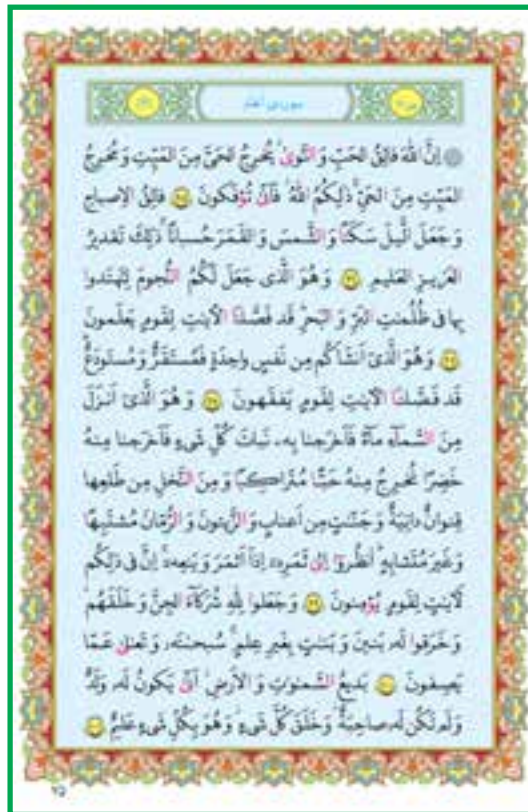 سورەی أنعام
۞ إِنَّ اللّٰهَ فالِقُ الحَبِّ وَ النَّوىٰ يُخرِجُ الحَيَّ مِنَ المَيِّتِ وَ مُخرِجُ
المَيِّتِ مِنَ الحَيِّ ذٰلِكُمُ اللّٰهُ فَأَنّىٰ تُؤفَكونَ ۝ فالِقُ الاِصباحِ
وَ جَعَلَ الَّيلَ سَكَنًا وَ الشَّمسَ وَ القَمَرَ حُسبانًا ذٰلِكَ تَقديرُ
العَزيزِ العَليمِ ۝ وَ هُوَ الَّذى جَعَلَ لَكُمُ النُّجومَ لِتَهتَدوا
بِها فى ظُلُمٰتِ البَرِّ وَ البَحرِ قَد فَصَّلنَا الآيٰتِ لِقَومٍ يَعلَمونَ
۝ وَ هُوَ الَّذى أَنشَأَكُم مِن نَفسٍ واحِدَةٍ فَمُستَقَرٌّ وَ مُستَودَعٌ
قَد فَصَّلنَا الآيٰتِ لِقَومٍ يَفقَهونَ ۝ وَ هُوَ الَّذى أَنزَلَ
مِنَ السَّمآءِ مآءً فَأَخرَجنا بِهِ نَباتَ كُلِّ شَىءٍ فَأَخرَجنا مِنهُ
خَضِرًا نُخرِجُ مِنهُ حَبًّا مُتَراكِبًا وَ مِنَ النَّخلِ مِن طَلعِها
قِنوانٌ دانِيَةٌ وَ جَنّٰتٍ مِن أَعنابٍ وَ الزَّيتونَ وَ الرُّمّانَ مُشتَبِهًا
وَ غَيرَ مُتَشابِهٍ اُنظُروا إِلىٰ ثَمَرِهِ إِذا أَثمَرَ وَ يَنعِهِ إِنَّ فى ذٰلِكُم
لَآيٰتٍ لِقَومٍ يُؤمِنونَ ۝ وَ جَعَلوا لِلّٰهِ شُرَكآءَ الجِنَّ وَ خَلَقَهُم
وَ خَرَقوا لَهُ بَنينَ وَ بَنٰتٍ بِغَيرِ عِلمٍ سُبحٰنَهُ وَ تَعٰلىٰ عَمّا
يَصِفونَ ۝ بَديعُ السَّمٰوٰتِ وَ الاَرضِ أَنّىٰ يَكونُ لَهُ وَلَدٌ
وَ لَم تَكُن لَهُ صاحِبَةٌ وَ خَلَقَ كُلَّ شَىءٍ وَ هُوَ بِكُلِّ شَىءٍ عَليمٌ ۝